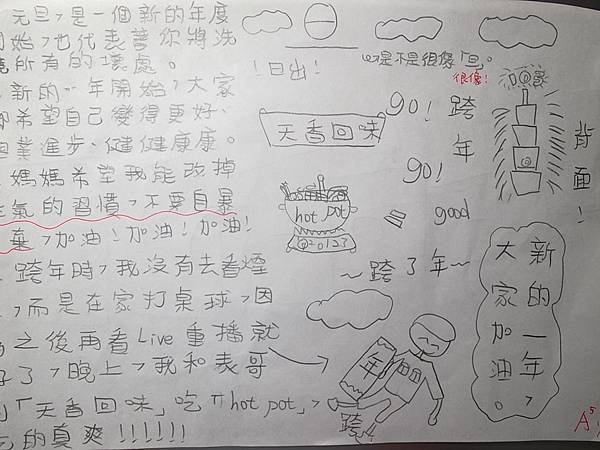 元旦,是一個新的年度
始,也代表著你將洗
所有的壞處。
新的一年開始,大家
都希望自己變得更好、
業進步、健健康康。
媽媽希望我能改掉
氣的習慣,不要自暴
棄,加油!加油!加油!
跨年時,我沒有去看煙
,而是在家打桌球,因
之後再看Live重播就
好了,晚上,我和表哥
「天香回味」吃「hot pot」,
的真爽!!!!!!
!日出!
是不是很像「旦」。
很像!
天香回味
hot pot
0123
go!跨年
go!
good
~跨了年~
年
跨
背面!
新的一年,
大家加油。
A5